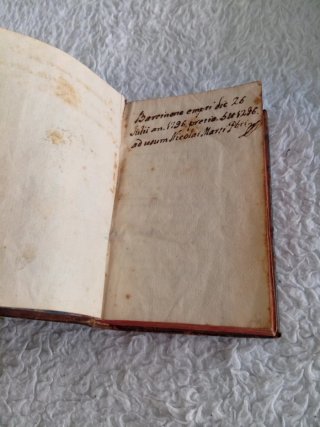 Barcinone empti die 26
Julii an. 1796 pretio
ad usum Nicolai Marti